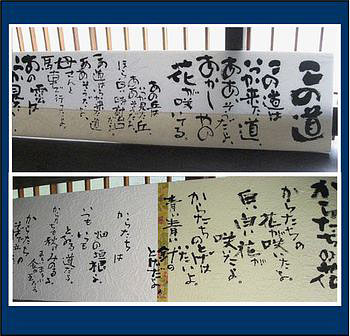 この道
この道は
いつか来た道、
ああ、そうだよ、
あかしやの
花が咲いてる。
あの丘は
いつか見た丘
ああ、そうだよ
ほら白い時計台だよ
この道は
いつか来た道
ああ、そうだよ
母さんと
馬車で行ったよ
あの雲は
いつか見た
からたちの花
からたちの
花が咲いたよ
白い白い花が
咲いたよ。
からたちのとげは
いたいよ
青い青い針の
とげだよ
からたちは
畑の垣根よ
いつもいつも
とおる道だよ
からたちも秋はみのるよ
まろいまろい
金のたまだよ
からたちの